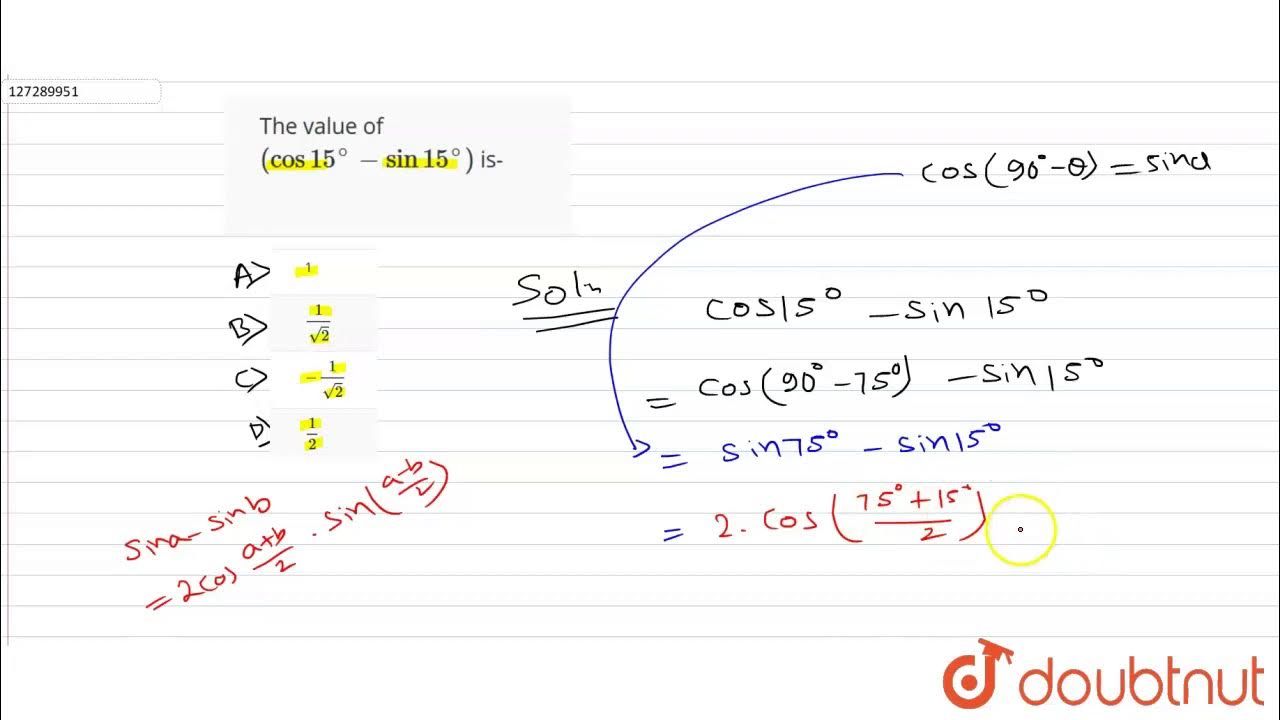 127289951
The value of
(cos 15° − sin 15°) is-
A> 1
B> 1/√2
C> −1/√2
D> 1/2
cos(90° − θ) = sinθ
Soln
cos15° − sin 15°
= cos(90° − 75°) − sin15°
= sin75° − sin15°
= 2. cos (75° + 15°/2)
sina − sinb
= 2cos a+b/2 . sin(a−b/2)
doubtnut